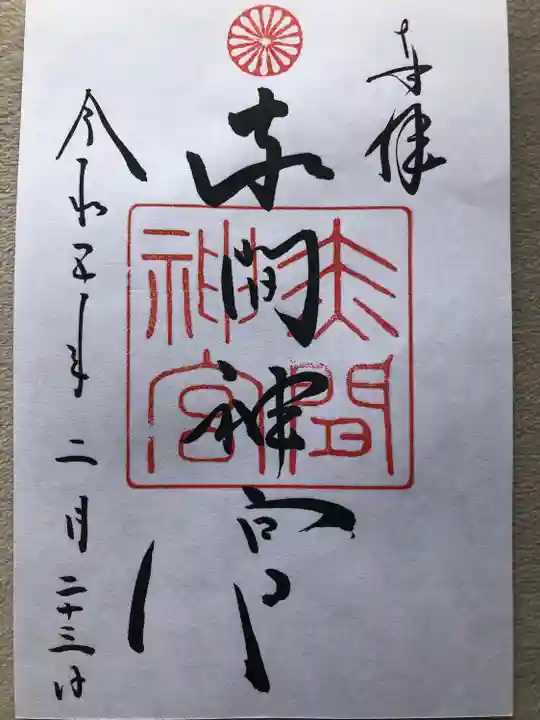 奉拝
赤間神宮
赤間
神宮
令和五年二月二十三日